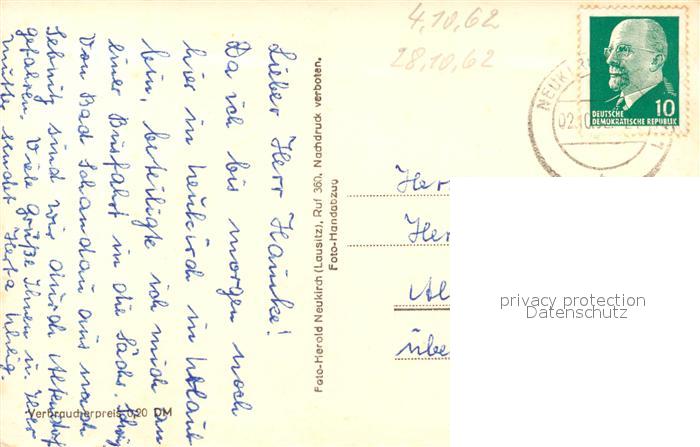 4.10.62
28.10.62
Lieber Herr Hauke!
Da ich bis morgen noch
hier in Neukirch in Urlaub
bin, beteiligte ich mich an
einer Busfahrt in die Sächs. Schweiz
Von Bad Schandau aus nach
Sebnitz sind wir durch Altendorf
gefahren. Viele Grüße Ihnen u. Ihrer
Mutter sendet Herta
Verbraucherpreis 0,20 DM
Foto-Herold Neukirch (Lausitz), Ruf 360, Nachdruck verboten.
Foto-Handabzug
DEUTSCHE
DEMOKRATISCHE REPUBLIK
10
NEUKI
02.10.62
Her
Her
Al
übe
privacy protection
Datenschutz